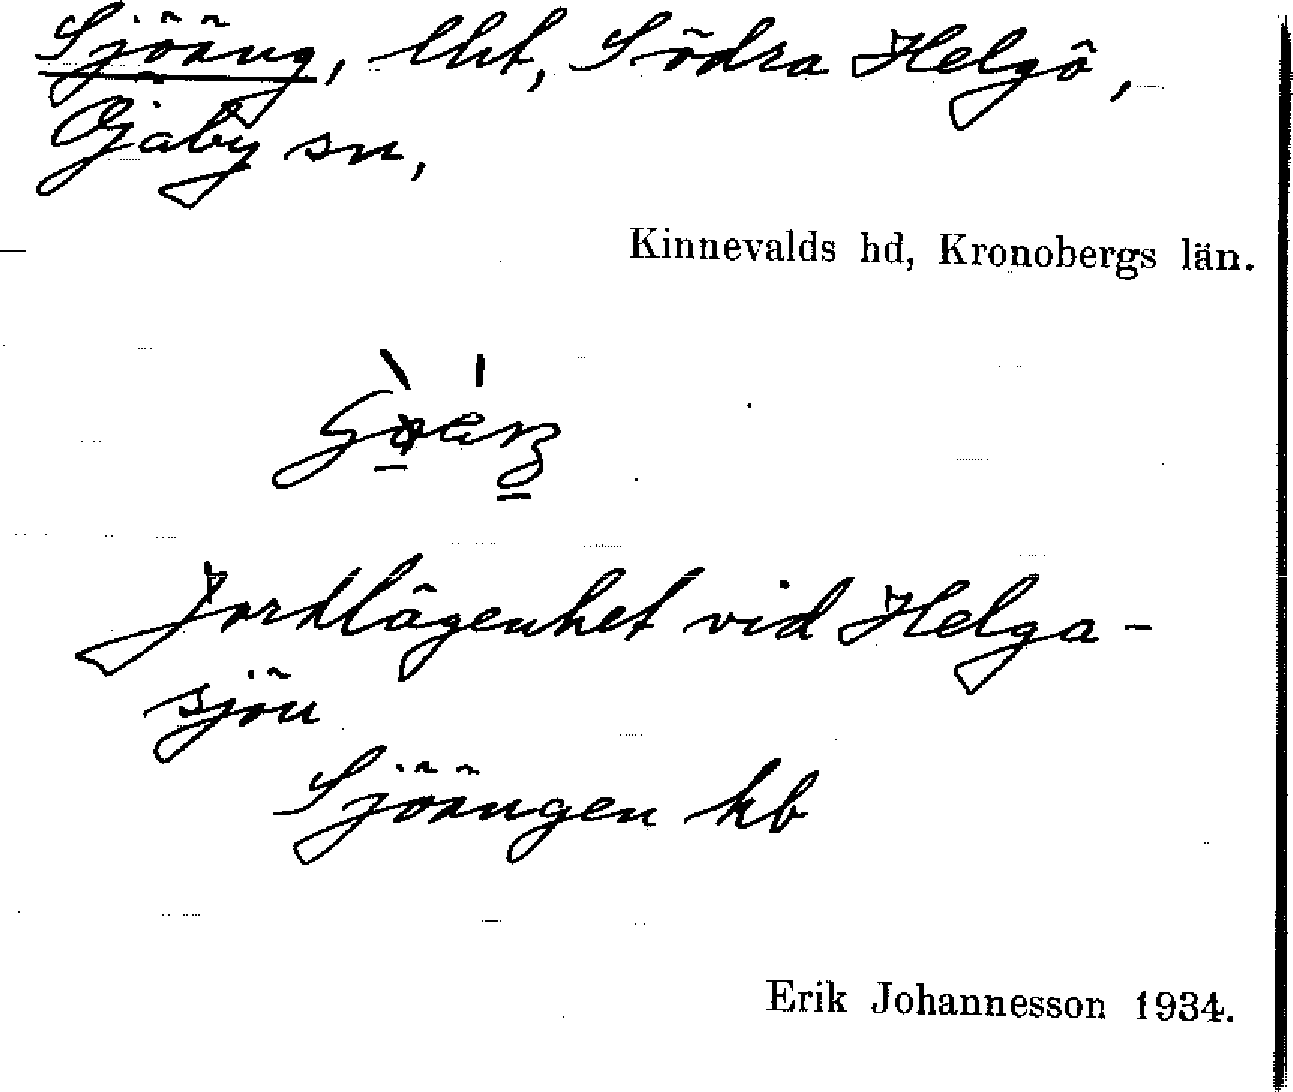 Sjöäng, lht, Södra Helgö,
Öjaby sn,
Kinnevalds hd, Kronobergs län.
Jordlägenhet vid Helga-
sjön
Sjöängen kb
Erik Johannesson 1934.